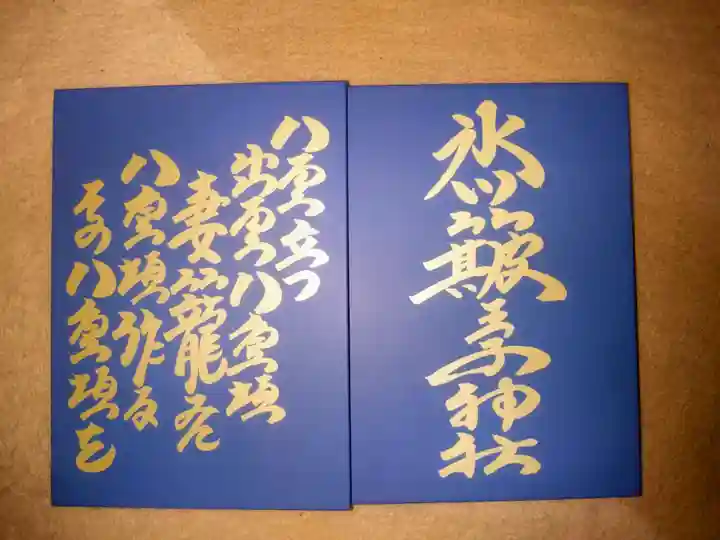 氷川簸王子神社
八雲立つ
出雲八重垣
妻籠尓
八重垣作る
その八重垣を